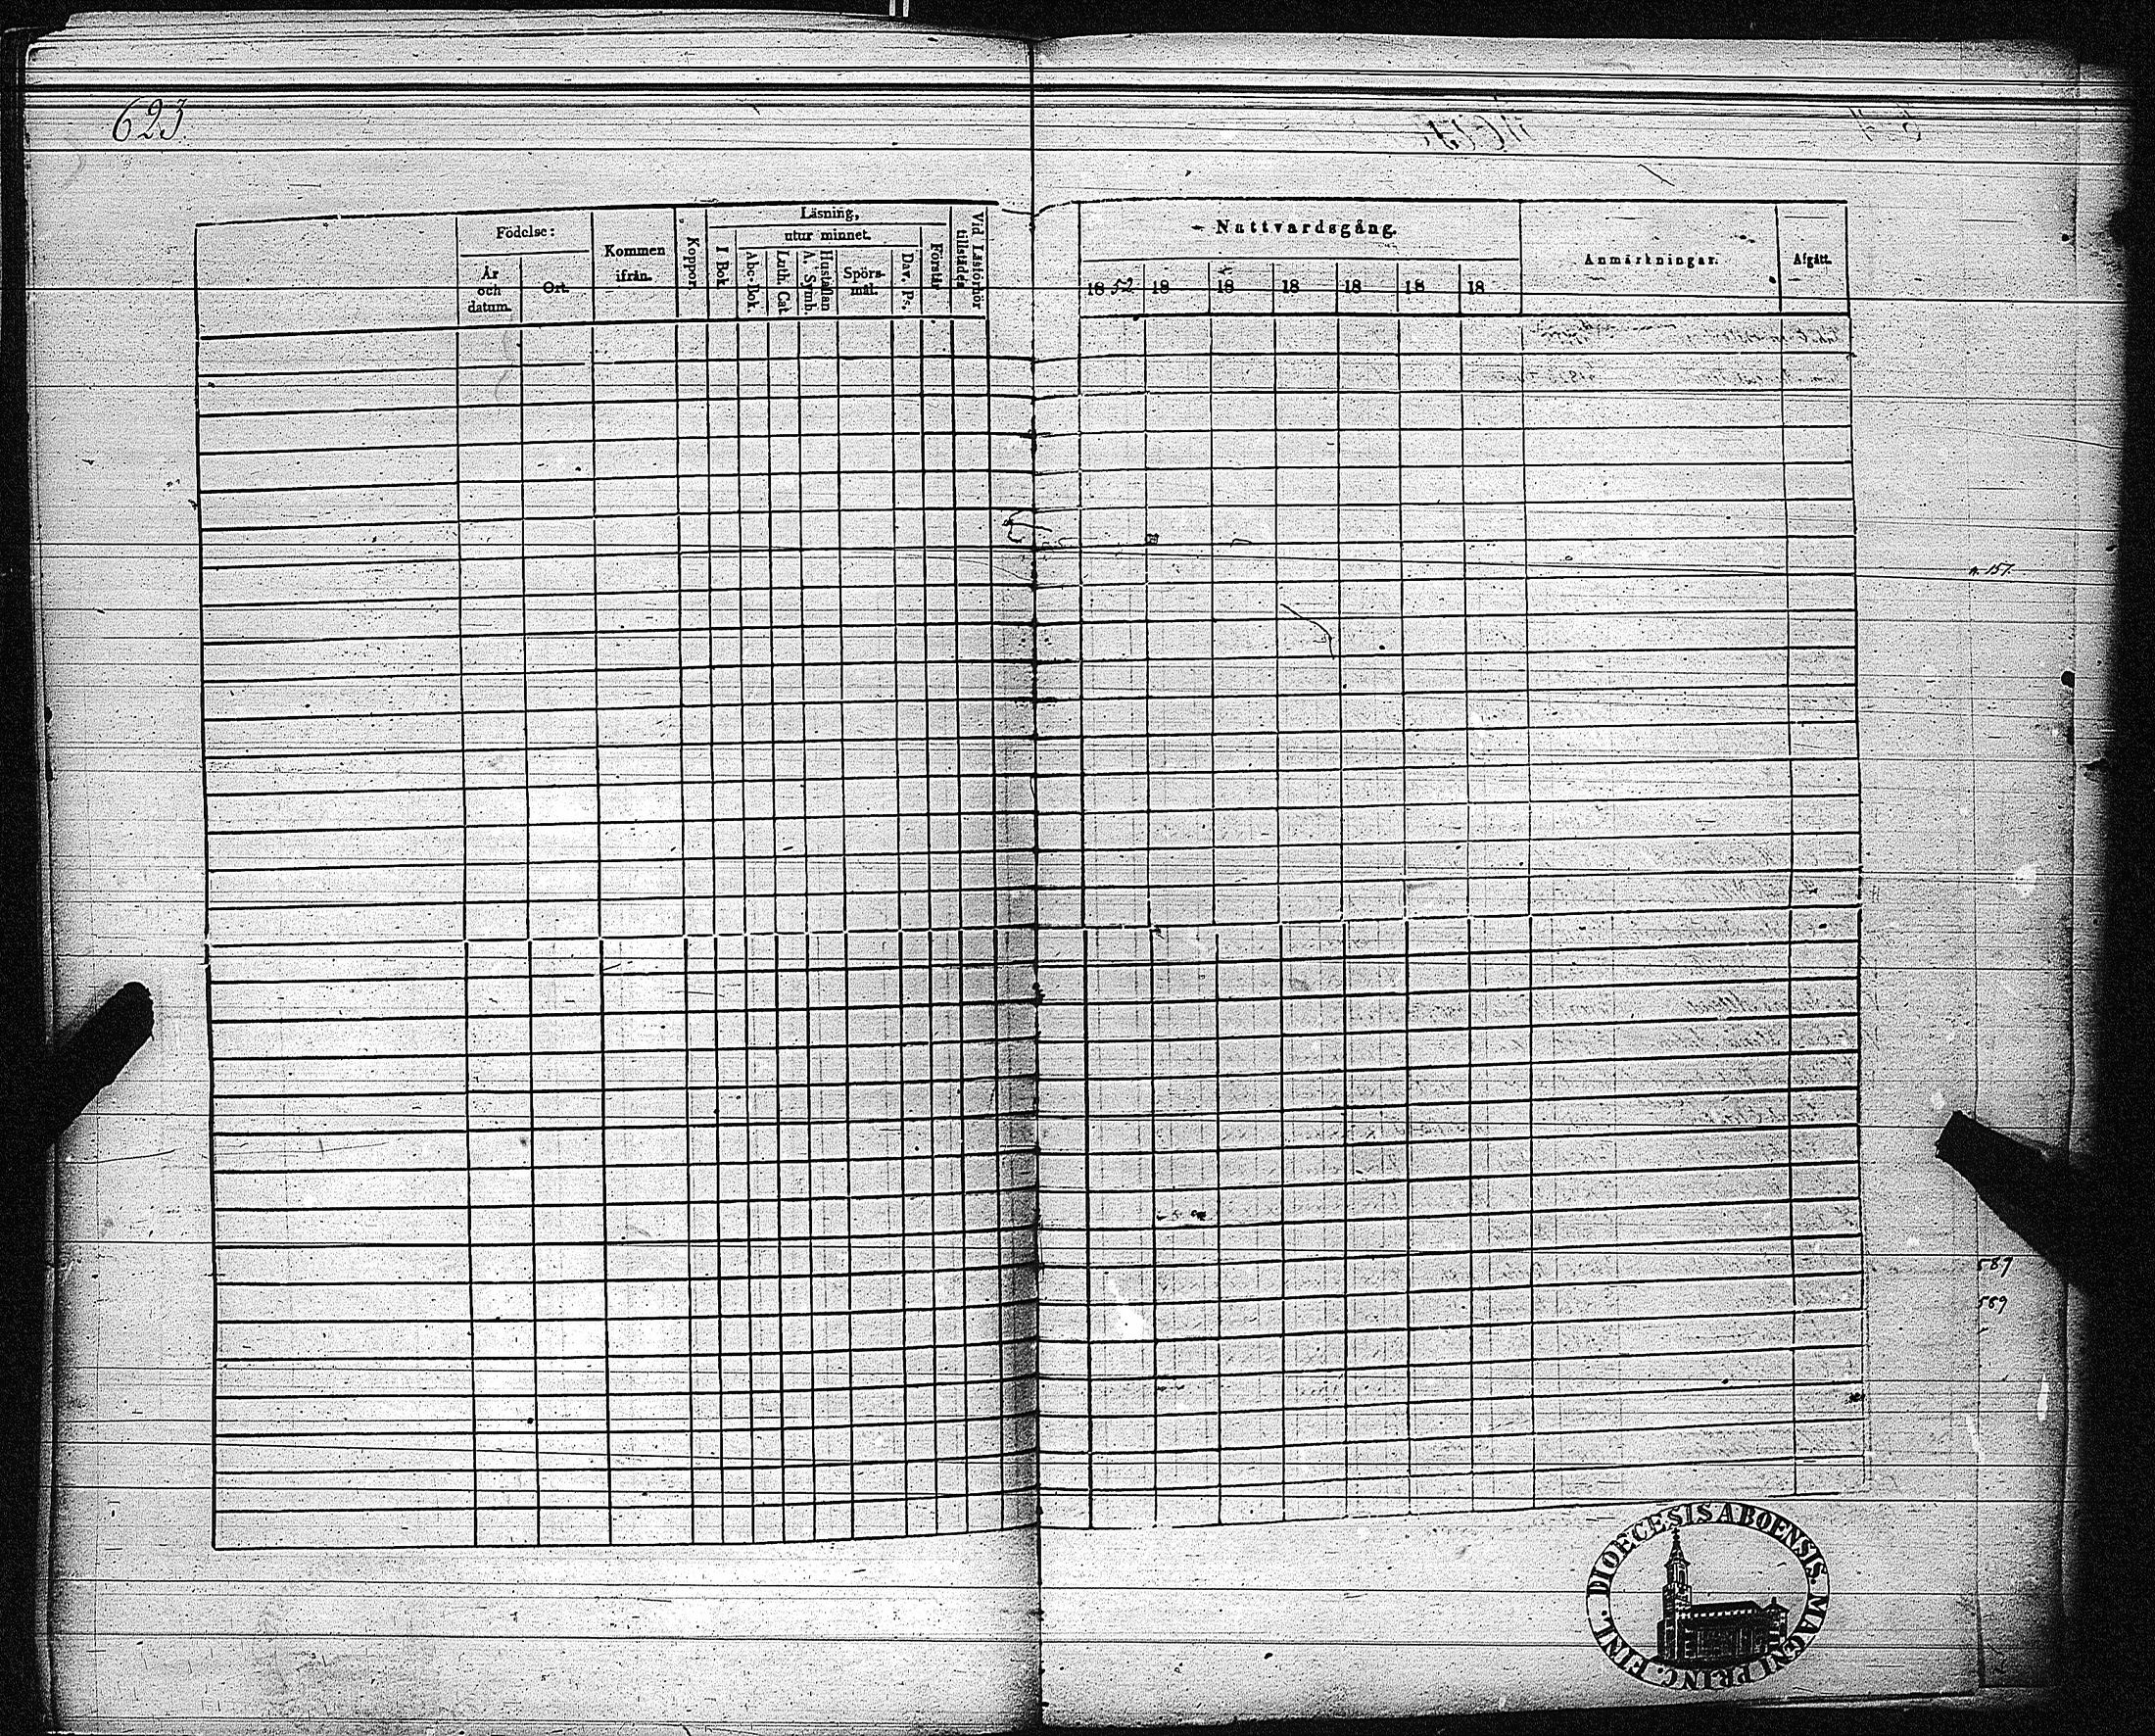 623
Födelse:
År och datum.
Ort.
Kommen ifrån.
Koppor.
Läsning,
utur minnet.
I Bok.
Abc-Bok.
Luth. Cat
Hustaflan A. Symb.
Spörs-mål.
Dav. Ps.
Förstår
Vid Läsförhör tillstädes
Nattvardsgång.
1852 18 18 18 18 18 18
Anmärkningar.
Afgått.
n. 157.
587
589
DIOECESIS ABOENSIS. MAGNI PRINC. FINL.